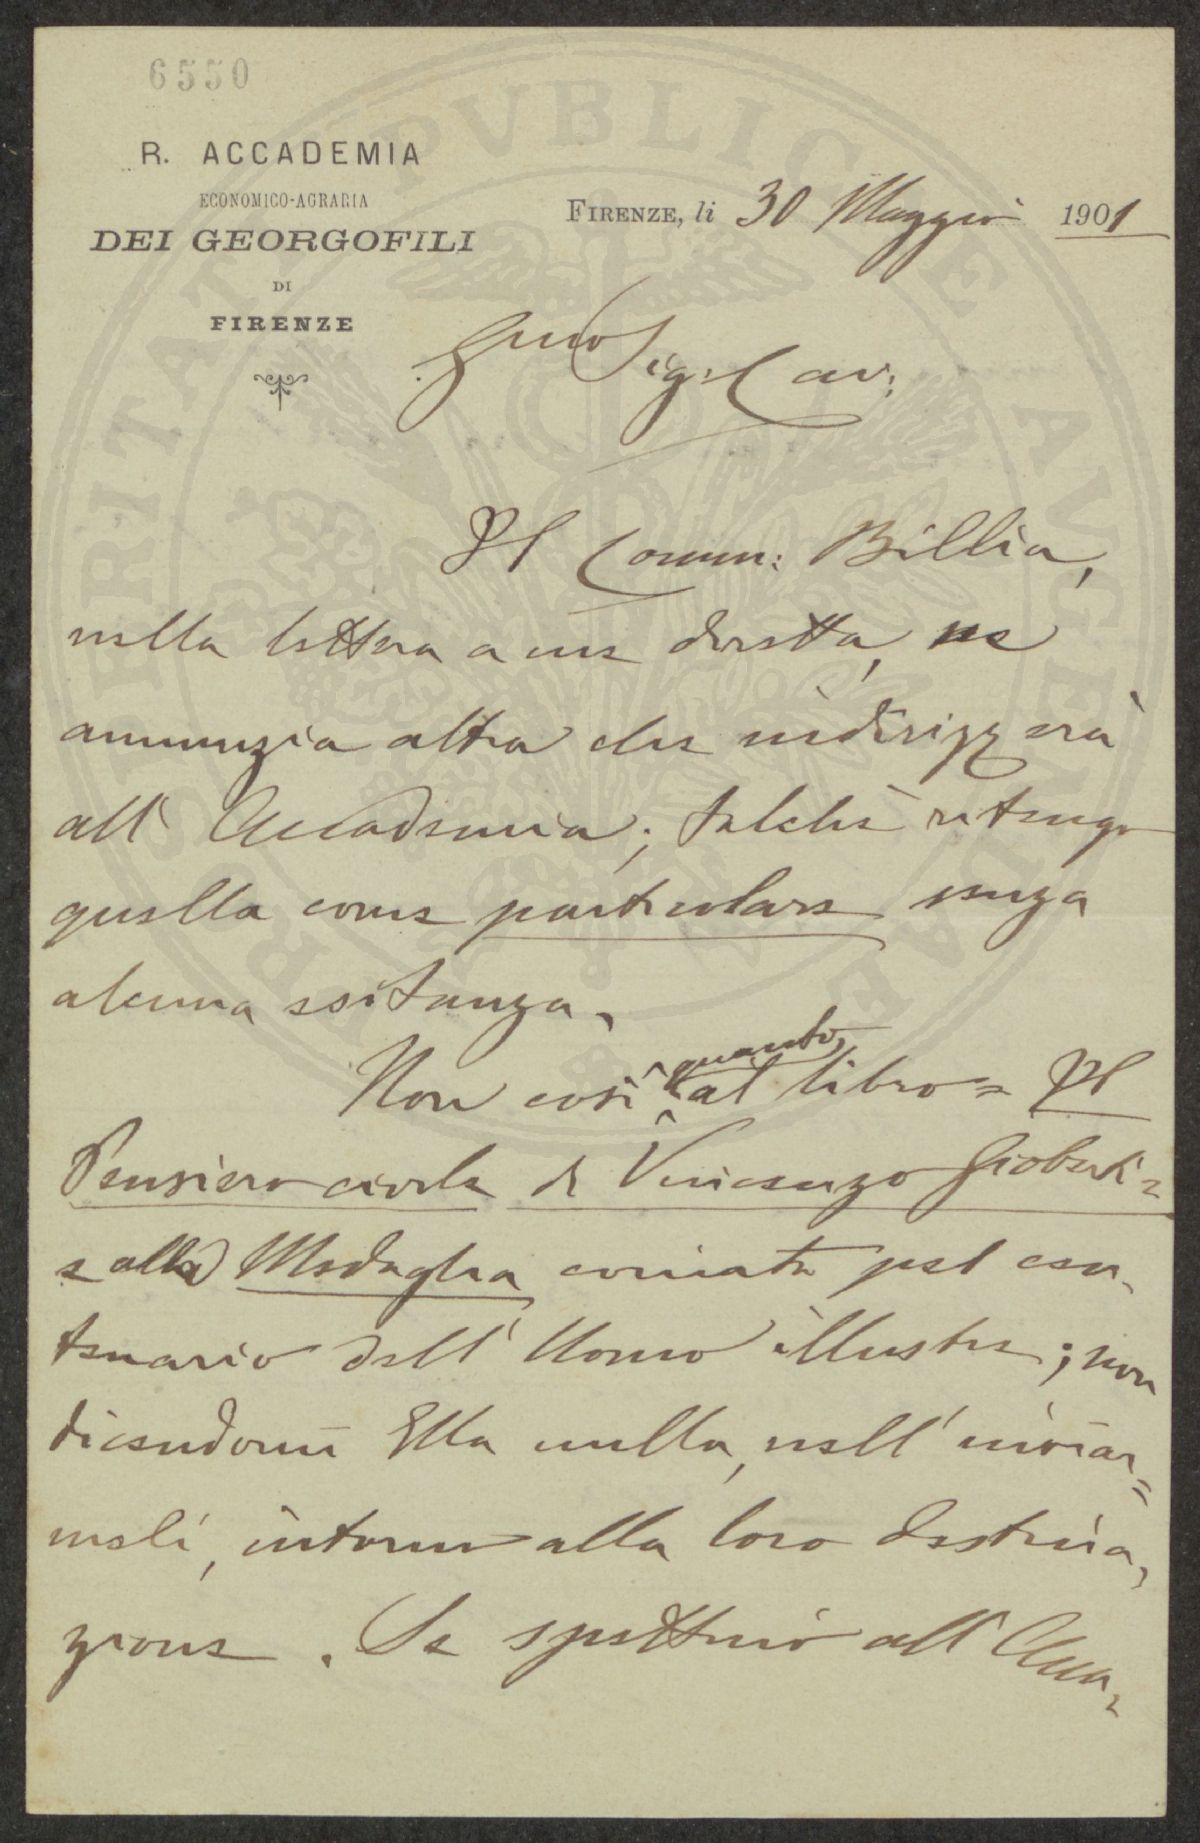 6550
R. ACCADEMIA
ECONOMICO-AGRARIA
DEI GEORGOFILI
DI
FIRENZE
FIRENZE, li 30 Maggio 1901
Sig. Cav:
Il Comm: Billia,
nella lettera a me diretta, ne
annunzia altra che indirizzerà
all' Accademia; talchè ritengo
quella come particolare senza
alcuna esitanza.
Non così quanto, al libro = Il
Pensiero civile di Vincenzo Gioberti =
e alla Medaglia coniata pel cen-
tenario dell' Uomo illustre; non
dicendomi Ella nulla, nell' inviar=
meli, intorno alla loro destina-
zione. Se spettino all' Acca-
PROSPERITATI PUBLICAE AUGENDAE